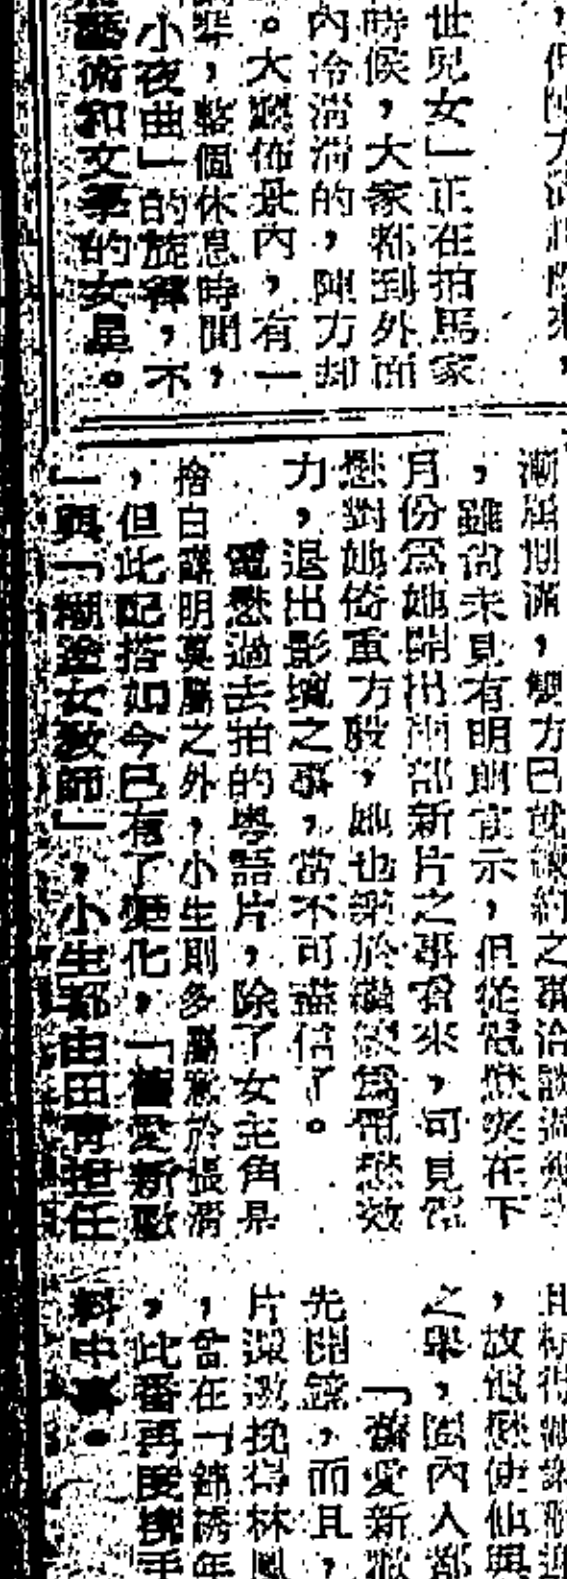 世兒女」正在拍馬家
時候，大家都到外面
內冷清清的，陳方却
。大廳佈景內，有一
，整個休息時間，
小夜曲」的旋律，不
藝術和文學的女星。
漸屆期滿，雙方已就續約之事洽談
，雖尙未見有明朗宣示，但從電懋突在下
月份爲她開出兩部新片之事看來，可見電
懋對她倚重方殷，她也樂於繼續爲電懋效
力，退出影壇之事，當不可盡信了。
電懋過去拍的粤語片，除了女主角是
白露明莫屬之外，小生則多屬意於張清
，但此配搭如今已有了變化，「舊愛新歡
」與「糊塗女教師」，小生都由田青担任
，故電懋使仙與
之果，圈內人都
「舊愛新歡
先開鏡，而且，
片還激挽得林鳳
，曾在「錦綉年
，此番再度携手
料中事。